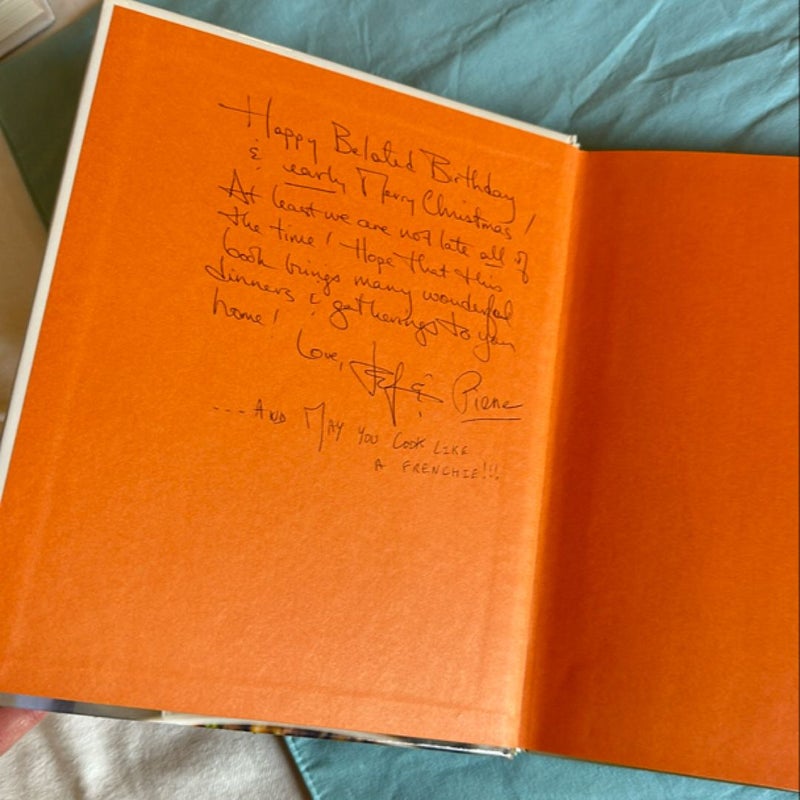 Happy Belated Birthday
& early Merry Christmas!
At least we are not late all of
the time! Hope that this
book brings many wonderful
dinners & gatherings to you
home!
Love, Jef & Piene
... AND MAY YOU COOK LIKE
A FRENCHIE!!!